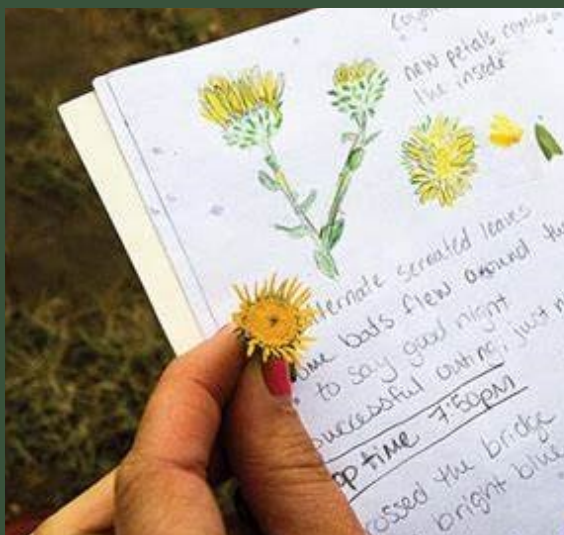 new petals
the inside
alternate serrated leaves
bats flew around
to say good night
successful outing, just
time 7:50pm
crossed the bridge
bright blue